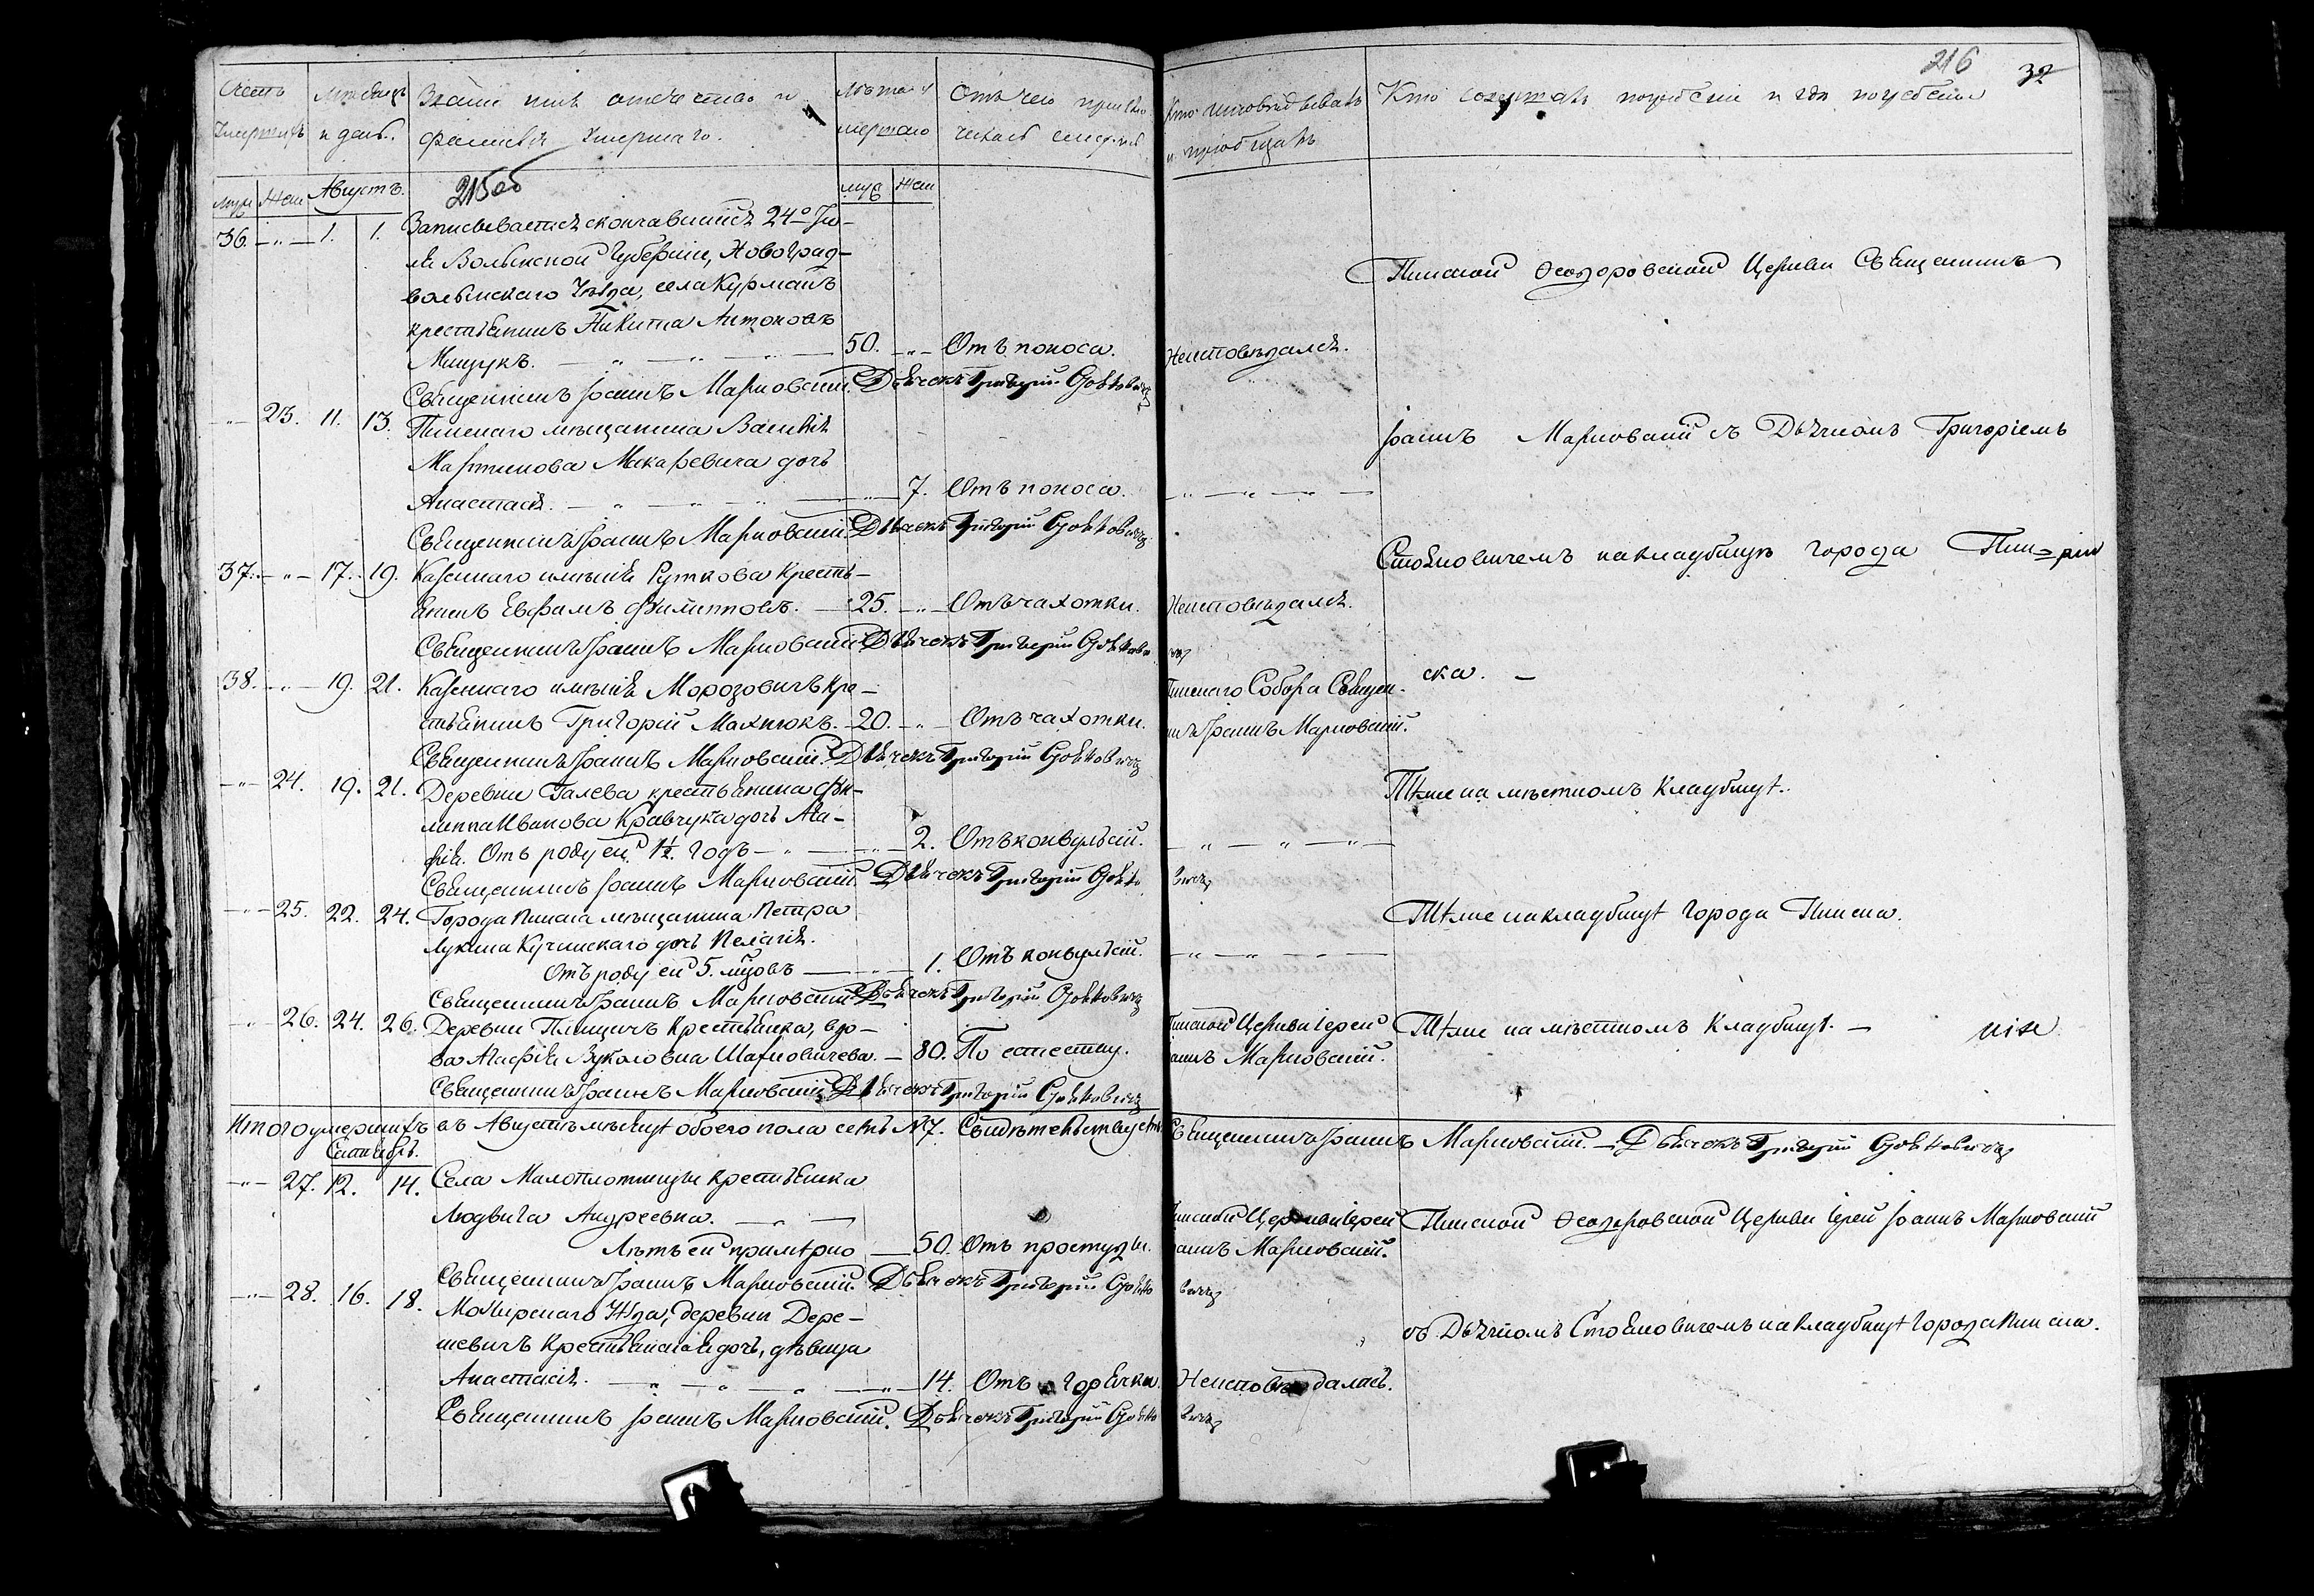 216 32
Счетъ умершихъ
Мѣсяцъ и день.
Званіе имя отечество и фамилія умершаго.
Лѣта умершаго
Отъ чего приключилась смерть
Кто исповѣдывалъ и пріобщалъ
Кто совершалъ погребеніе и гдѣ погребены
215об
муж Жен Августъ. муж Жен
36. — „ — 1. 1. Записывается скончавшійся 24го Iю-
ля Волынской Губерніи, Новоград-
волынскаго Уѣзда, села Курманъ
крестьянинъ Никита Антоновъ
Мищукъ. — „ — „ — 50. — „ — Отъ поноса. Неисповѣдался.
Священникъ Iоаннъ Марновскій. Дьячекъ Григорій Стояновичъ
Пинской Феодоровской Церкви Священникъ
— „ — 23. 11. 13. Пинскаго мѣщанина Василія
Мартинова Макаревича дочь
Анастасія. — „ — „ — „ — 7. Отъ поноса. — „ — „ — „ —
Священникъ Iоаннъ Марновскій. Дьячекъ Григорій Стояновичъ
Iоаннъ Марновскій съ Дьячкомъ Григоріемъ
Стояновичемъ на кладбищѣ города Пин-
37. — „ — 17. 19. Казеннаго имѣнія Руткова Кресть-
янинъ Евфимъ Филипповъ. — 25. — „ — Отъ чахотки. Неисповѣдался.
Священникъ Iоаннъ Марновскій Дьячекъ Григорій Стояновичъ
ска. —
38. — „ — 19. 21. Казеннаго имѣнія Морозовичъ Кре-
стьянинъ Григорій Махнюкъ. — 20. — „ Отъ чахотки.
Пинскаго Собора Священ-
никъ Iоаннъ Марновскій.
Священникъ Iоаннъ Марновскій. Дьячекъ Григорій Стояновичъ
— „ — 24. 19. 21. Деревни Галева крестьянина Фи-
липпа Иванова Кравчука дочь Ага-
фія. Отъ роду ей 1½ годъ — „ — 2. Отъ конвульсій. — „ — „ — „ —
Тѣже на мѣстномъ Кладбищѣ.
Священникъ Iоаннъ Марновскій Дьячекъ Григорій Стояновичъ
— „ — 25. 22. 24. Города Пинска мѣщанина Петра
Лукина Кучинскаго дочь Пелагія.
Отъ роду ей 5. мцовъ — „ — 1. Отъ конвульсій. — „ — „ — „ —
Тѣже на кладбищѣ города Пинска.
Священникъ Iоаннъ Марновскій Дьячекъ Григорій Стояновичъ
— „ — 26. 24. 26. Деревни Плищичъ Крестьянка, вдо-
ва Агафія Вуколовна Шарковичева. — 80. По естеству.
Пинской Церкви Iерей
Iоаннъ Марновскій.
Тѣже на мѣстномъ Кладбищѣ. —
Священникъ Iоаннъ Марновскій Дьячекъ Григорій Стояновичъ
Итого умершихъ въ Августѣ мѣсяцѣ обоего пола семь № 7. Свидѣтельствуетъ Священникъ Iоаннъ Марновскій. — Дьячекъ Григорій Стояновичъ
Сентябрь.
— „ — 27. 12. 14. Села Малоплотницы крестьянка
Людвига Андреевна. — „ —
Лѣтъ ей примѣрно — 50. Отъ простуды.
Пинской Церкви Iерей
Iоаннъ Марновскій.
Пинской Феодоровской Церкви Iерей Iоаннъ Марновскій
Священникъ Iоаннъ Марновскій. Дьячекъ Григорій Стояновичъ
— „ — 28. 16. 18. Мозырскаго Уѣзда, деревни Дере-
шевичъ Крестьянская дочь, дѣвица
Анастасія. — „ — „ — „ — 14. Отъ горячки. Неисповѣдалась.
съ Дьячкомъ Стояновичемъ на кладбищѣ города Пинска.
Священникъ Iоаннъ Марновскій. Дьячекъ Григорій Стояновичъ